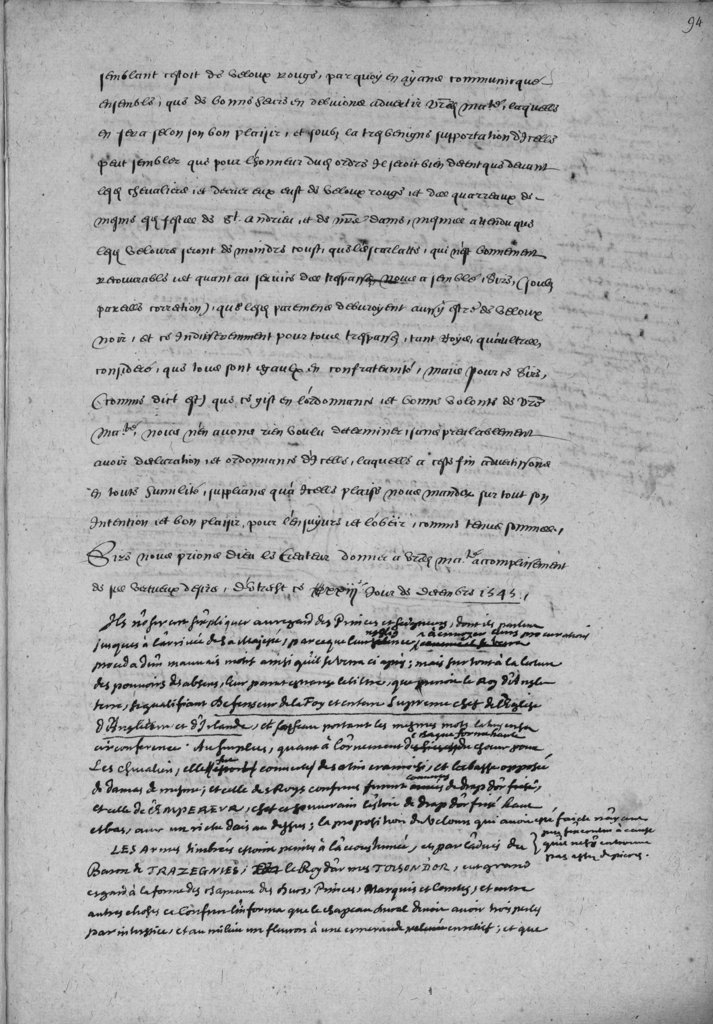 94
semblant cestoit de veloux rouge, par quoy en ayans communicqué
ensemble, que de bonne heure en debvions advertir vre. mate., laquelle
en sera selon son bon plaisir, et soubz la tresbenigne supportation d'Icelle
peut sembler que pour l'honneur dud. ordre Il seroit bien decent que devant
lesd. chevaliers et derrier eux eust de veloux rouge et des quarreaux de
mesme es festes de St. Andrieu, et de nre. dame, mesmes attendu que
lesd. velours seront de moindre coust, que l'escarlatte, qui n'est bonnement
recouvrable, et quant au service des trespassez, Nous a semblé, Sire, (soubz
pareille correction), que lesd. paremens debvroyent aussy estre de veloux
noir, et ce Indifferemment pour tous trespassez, tant Roys, qu'aultres,
consideré, que tous sont egaulx en confraternité, Mais pour ce Sire,
(comme dict est) que ce gist en l'ordonnance et bonne volonte de vre.
Mate., nous n'en avons rien voulu determiner, sans prealablement
avoir declaration, et ordonnance d'Icelle, laquelle a ceste fin advertissons
en toute humilité, supplians qu'a Icelle plaise nous mander sur tout son
Intention et bon plaisir, pour l'ensuyvre et l'obeir, comme tenus sommes,
Sire nous prions dieu le Createur donner a vre. mate. accomplissement
de ses vertueux desirs, D'Utrecht ce xxiije. Jour de decembre 1545.
Ils n'oserent s'expliquer au regard des Princes et Seigneurs, dont ils parlent
jusques à l'arrivée de sa Majesté, parceque leur à envoyer leurs procurations
proceda d'un mauvais mois ainsi qu'il se verra cy apres; mais sur tout à la lecture
des pouvoirs des absens, leur parut estrange le tiltre, que prenoit le Roy d'Angle
terre, se qualifiant Defenseur de la Foy et en terre Supreme chef de l'Eglise
d'Angleterre et d'Irlande, et son sceau portant les mesmes mots
circonference. Au surplus, quant à l'ornement du choeur pour
Les chevaliers, elles couvertes de satin cramoisi, et la basse opposée
de damas de mesme; et celle des Roys confreres furent de drap d'or frisé,
et celle de l'EMPEREUR, chef et souverain estoit de drap d'or frisé haut
et bas, avec un riche dais au dessus; la proposition de velours qui avoit esté faicte n'ayant
pas à cause
pas assez de pieces.
LES Armes timbrées estoient peintes à l'accoustumée, et par l'advis du
Baron de TRAZEGNIES, le Roy d'armes TOISON D'OR, eut grand
esgard à la forme des chapeaux des Ducs, Princes, Marquis et Comtes, et entre
autres choses ce l'informa que le chapeau ducal devoit avoir trois perles
par interstice, et au milieu un fleuron à une esmeraude en relief; et que